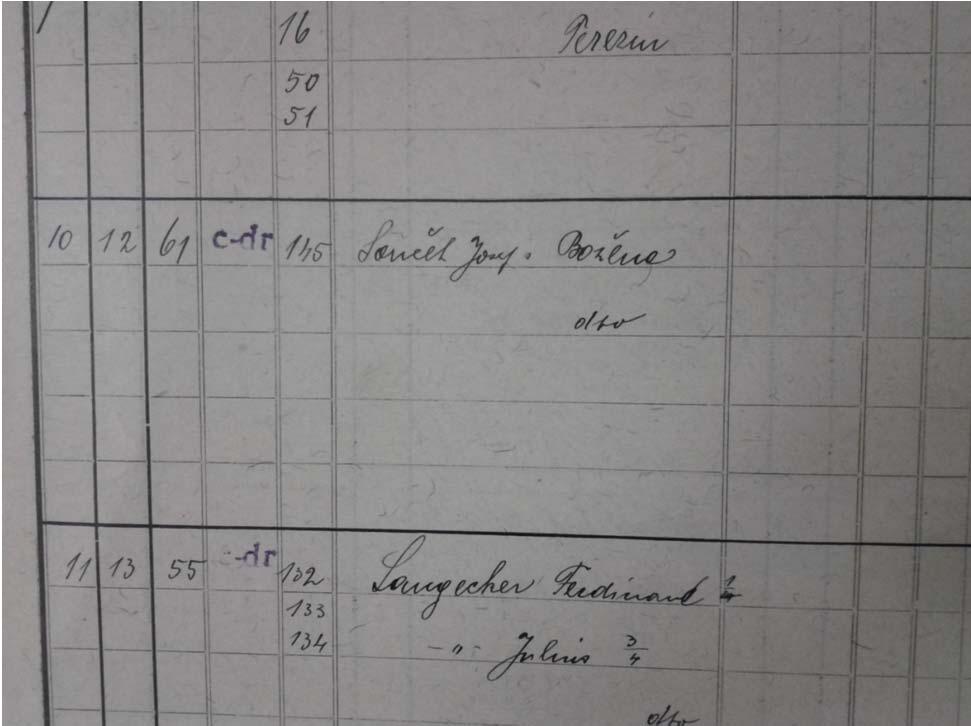 16 Perezin
50
51
10 12 61 c-dr 145 Součet Josef a Božena
dto
11 13 55 c-dr 132 Langecher Ferdinand 1/4
133
134 -„- Julius 3/4
dto